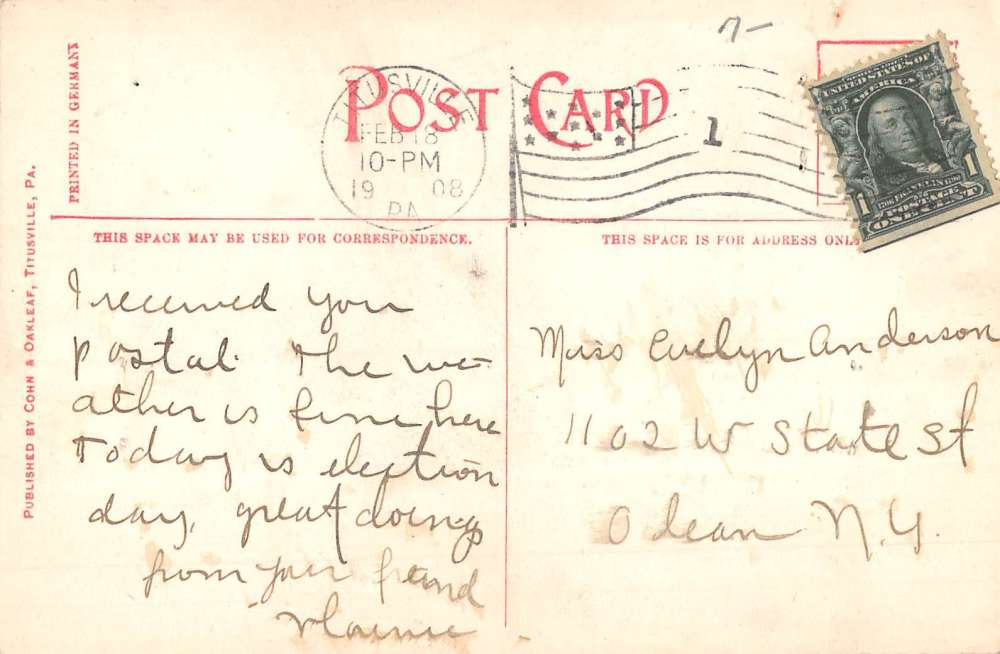 7-
PRINTED IN GERMANY
PUBLISHED BY COHN & OAKLEAF, TITUSVILLE, PA.
POST CARD
TITUSVILLE
FEB 18
10-PM
19 08
PA
1
UNITED STATES OF
AMERICA
1706 FRANKLIN 1790
1 POSTAGE 1
ONE CENT
THIS SPACE MAY BE USED FOR CORRESPONDENCE.
THIS SPACE IS FOR ADDRESS ONLY
I received your
postal. The we-
ather is fine here
Today is election
day, great doings
from your friend
Miss Evelyn Anderson
1102 W State St
Olean N.Y.